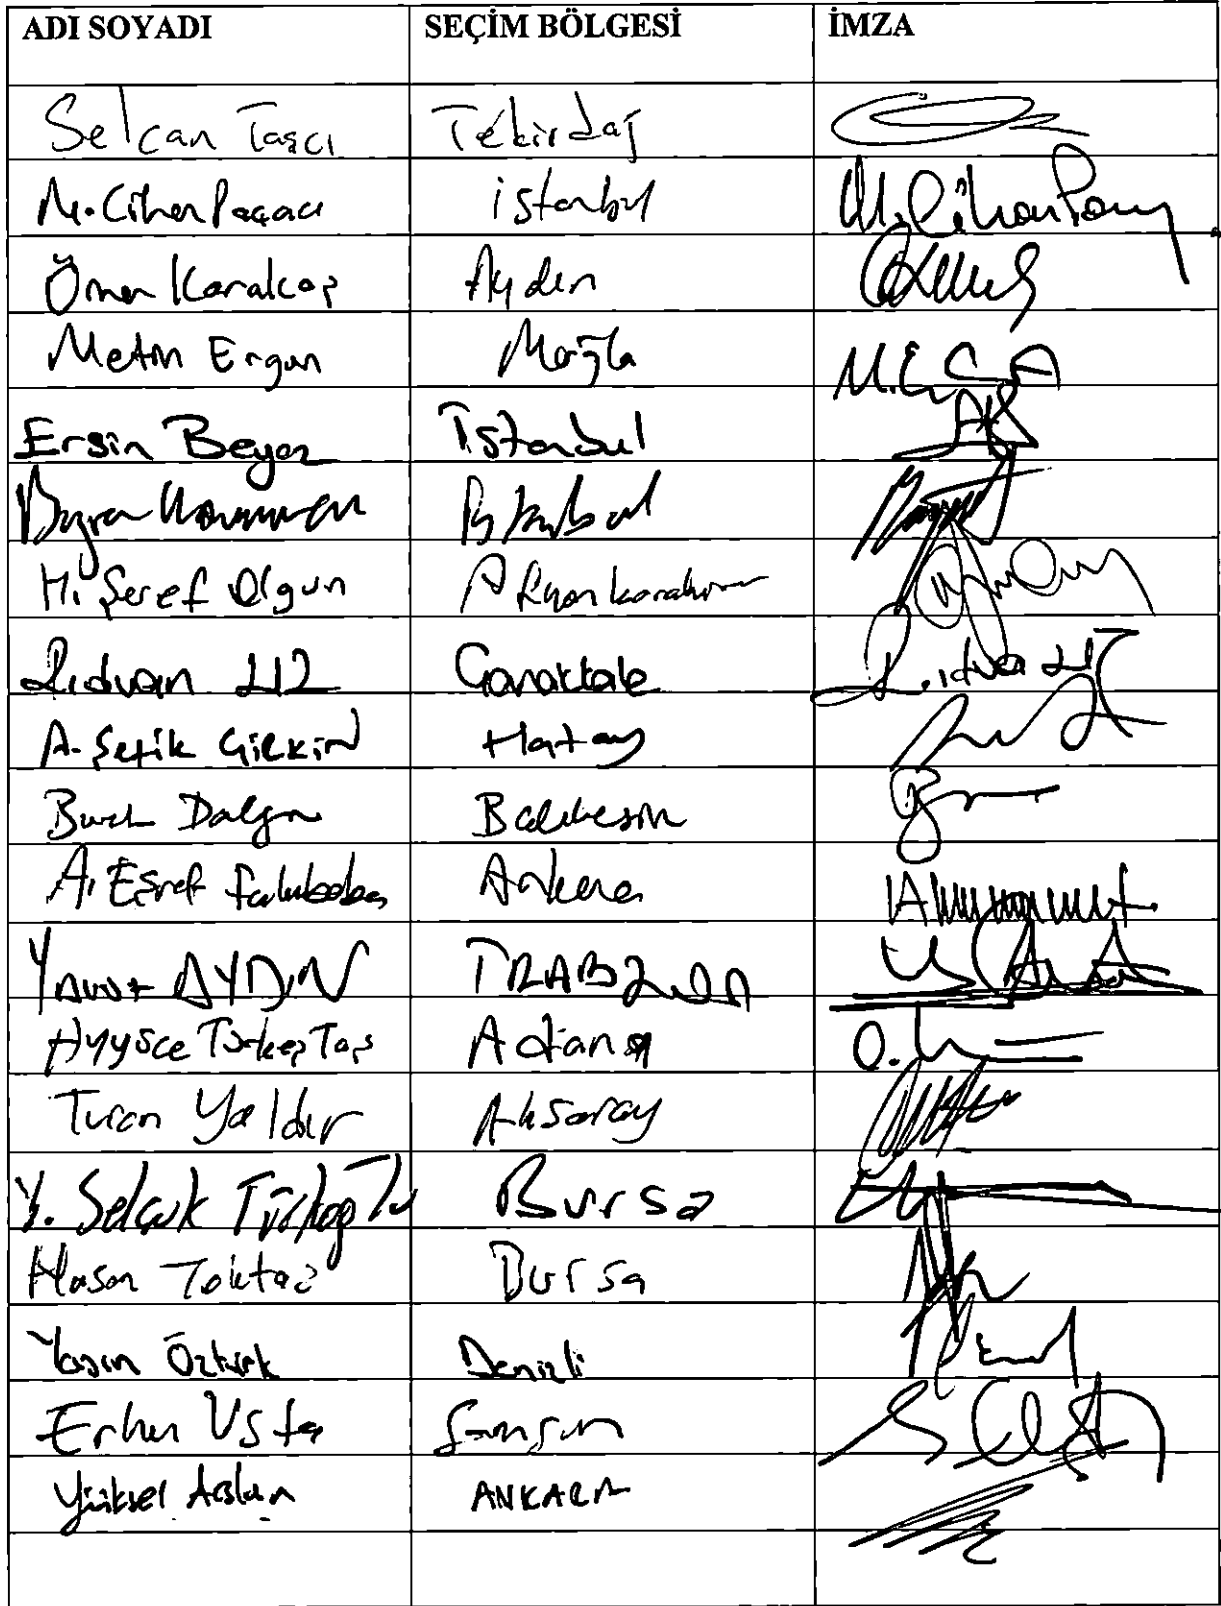 ADI SOYADI SEÇİM BÖLGESİ İMZA
Selcan Taşcı Tekirdağ
M. Cihan Paçacı istanbul M. Cihan Paçacı
Ömer Karakaş Aydın
Metin Ergun Muğla M.E
Ersin Beyaz İstanbul
Istanbul
H. Şeref Olgun Afyonkarahisar
Rıdvan UZ Çanakkale Rıdvan UZ
A. Şefik Çirkin Hatay
Burak Dalgın Balıkesir
A. Eşref Fakıbaba Ankara
Yavuz AYDIN TRABZON
Ayyüce Türkeş Taş Adana
Turan Yaldır Aksaray
Y. Selçuk Türkoğlu Bursa
Hasan Toktaş Bursa
Yasin Öztürk Denizli
Erhan Usta Samsun
Yüksel Arslan ANKARA